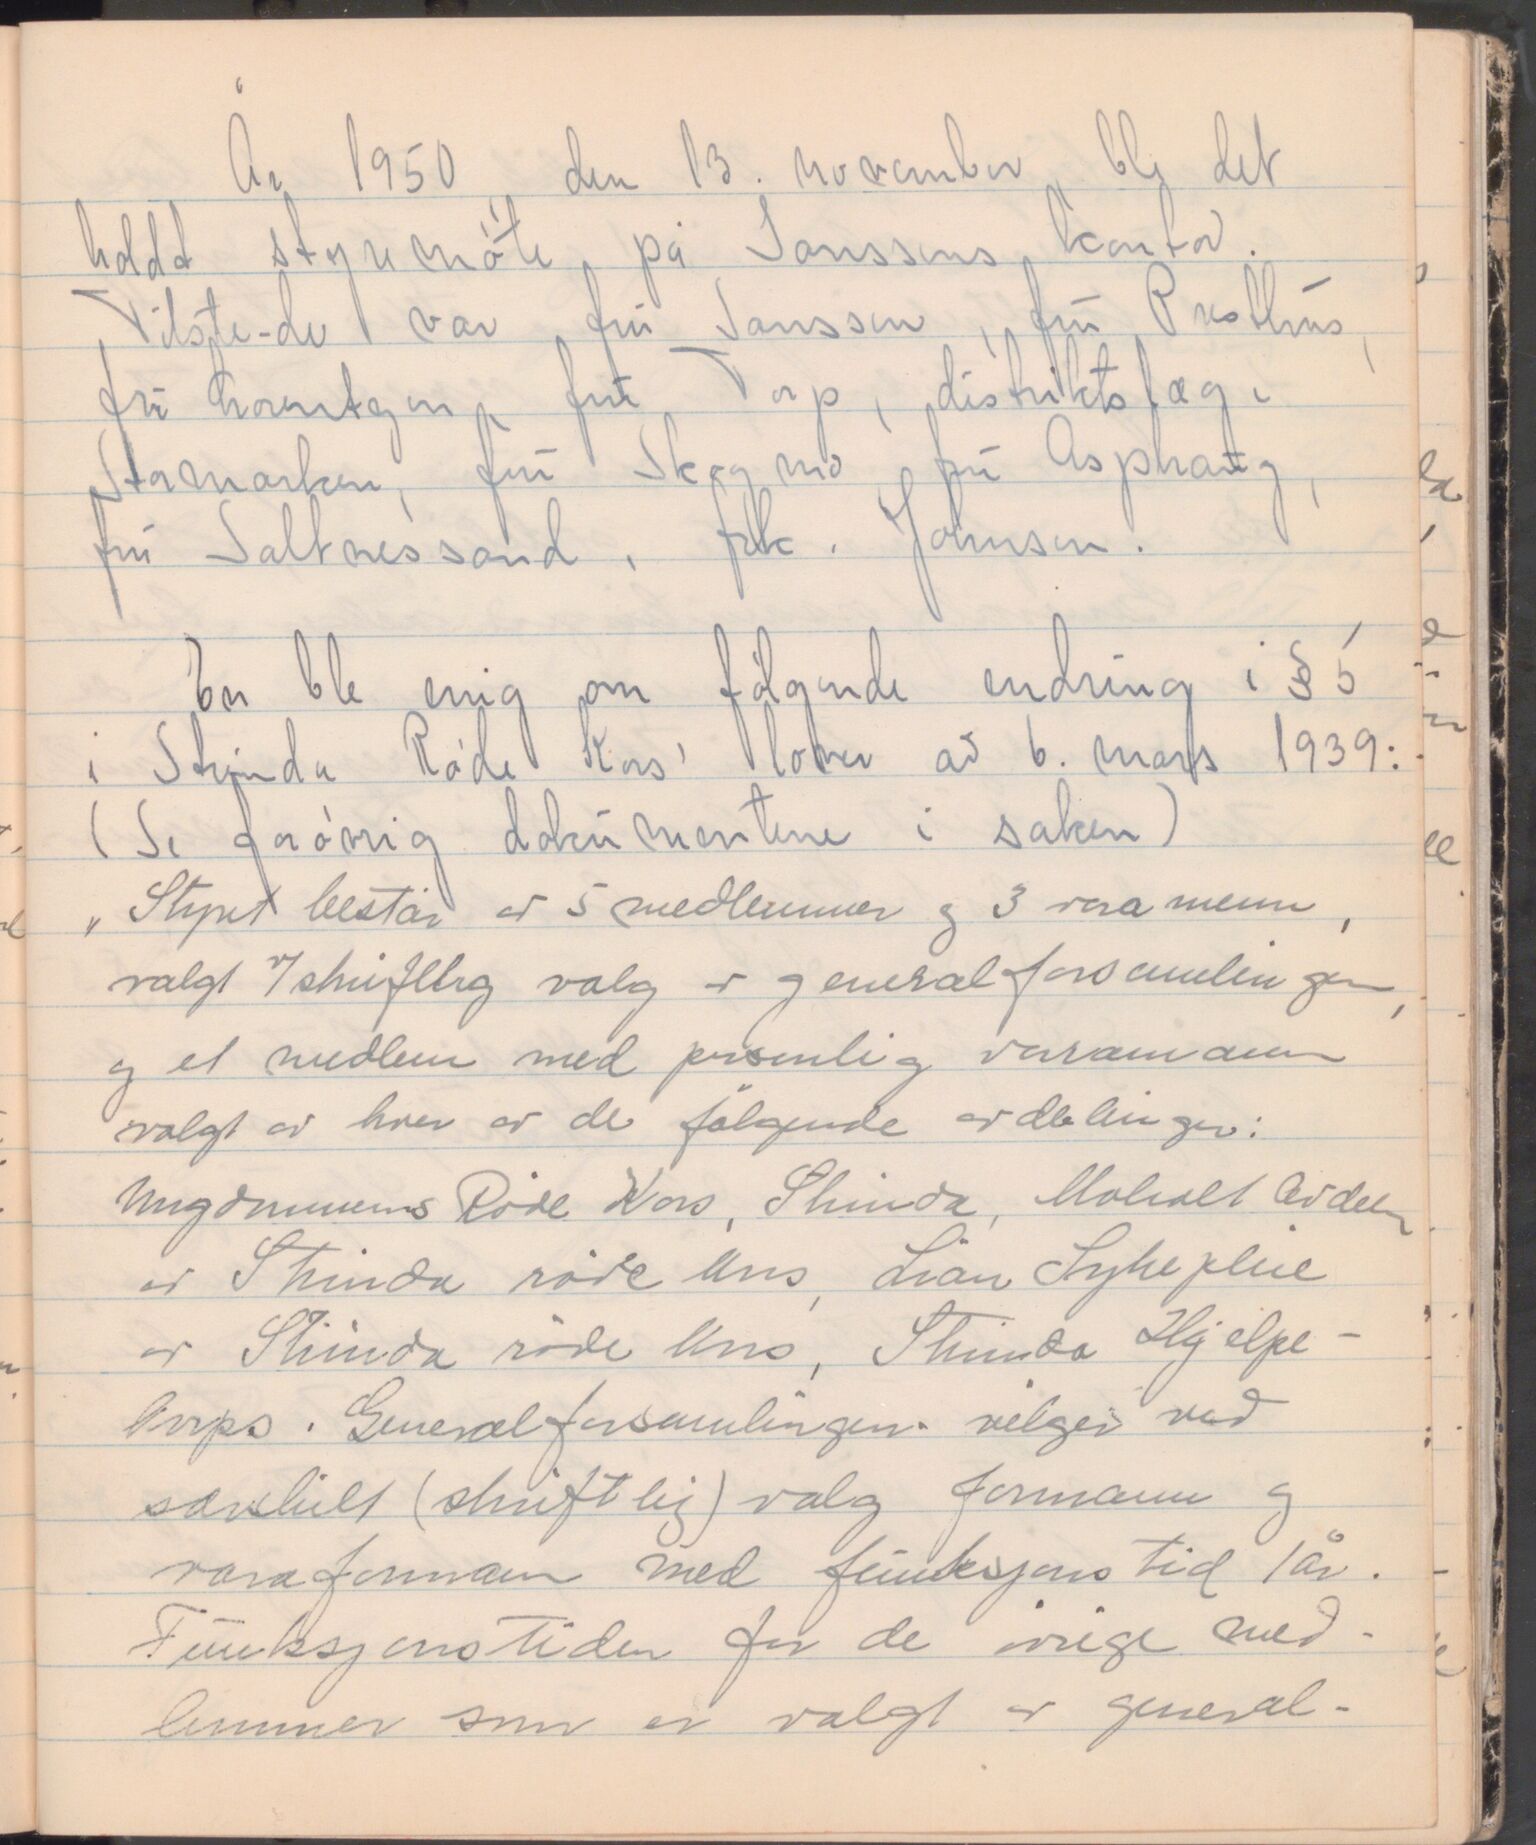 År 1950 den 13. november ble det
holdt styremøte på Janssens kontor.
Tilste-de var frú Janssen, frú Presthús,
frú frú Torp, distriktslæge
Stormorken, frú Skogmo, frú Asphaug,
frú Saltnessand, frk. Johnsen.
En ble enig om følgende endring i § 5
i Strinda Røde Kors' lover av 6. mars 1939:
(Se forøvrig dokúmentene i saken)
"Styret består av 5 medlemmer og 3 vara menn,
valgt v/ skriftlig valg av generalforsamlingen,
og et medlem med personlig varamann
valgt av hver av de følgende avdelinger:
Ungdommens Røde Kors, Strinda, Moholt Avdeling
av Strinda røde Kors, Lian Sykepleie
av Strinda røde Kors, Strinda Hjelpe-
korps. Generalforsamlingen velger ved
særskilt (skriftlig) valg formann og
varaformann med funksjonstid 1 år.
Funksjonstiden for de øvrige med-
lemmer som er valgt av general-